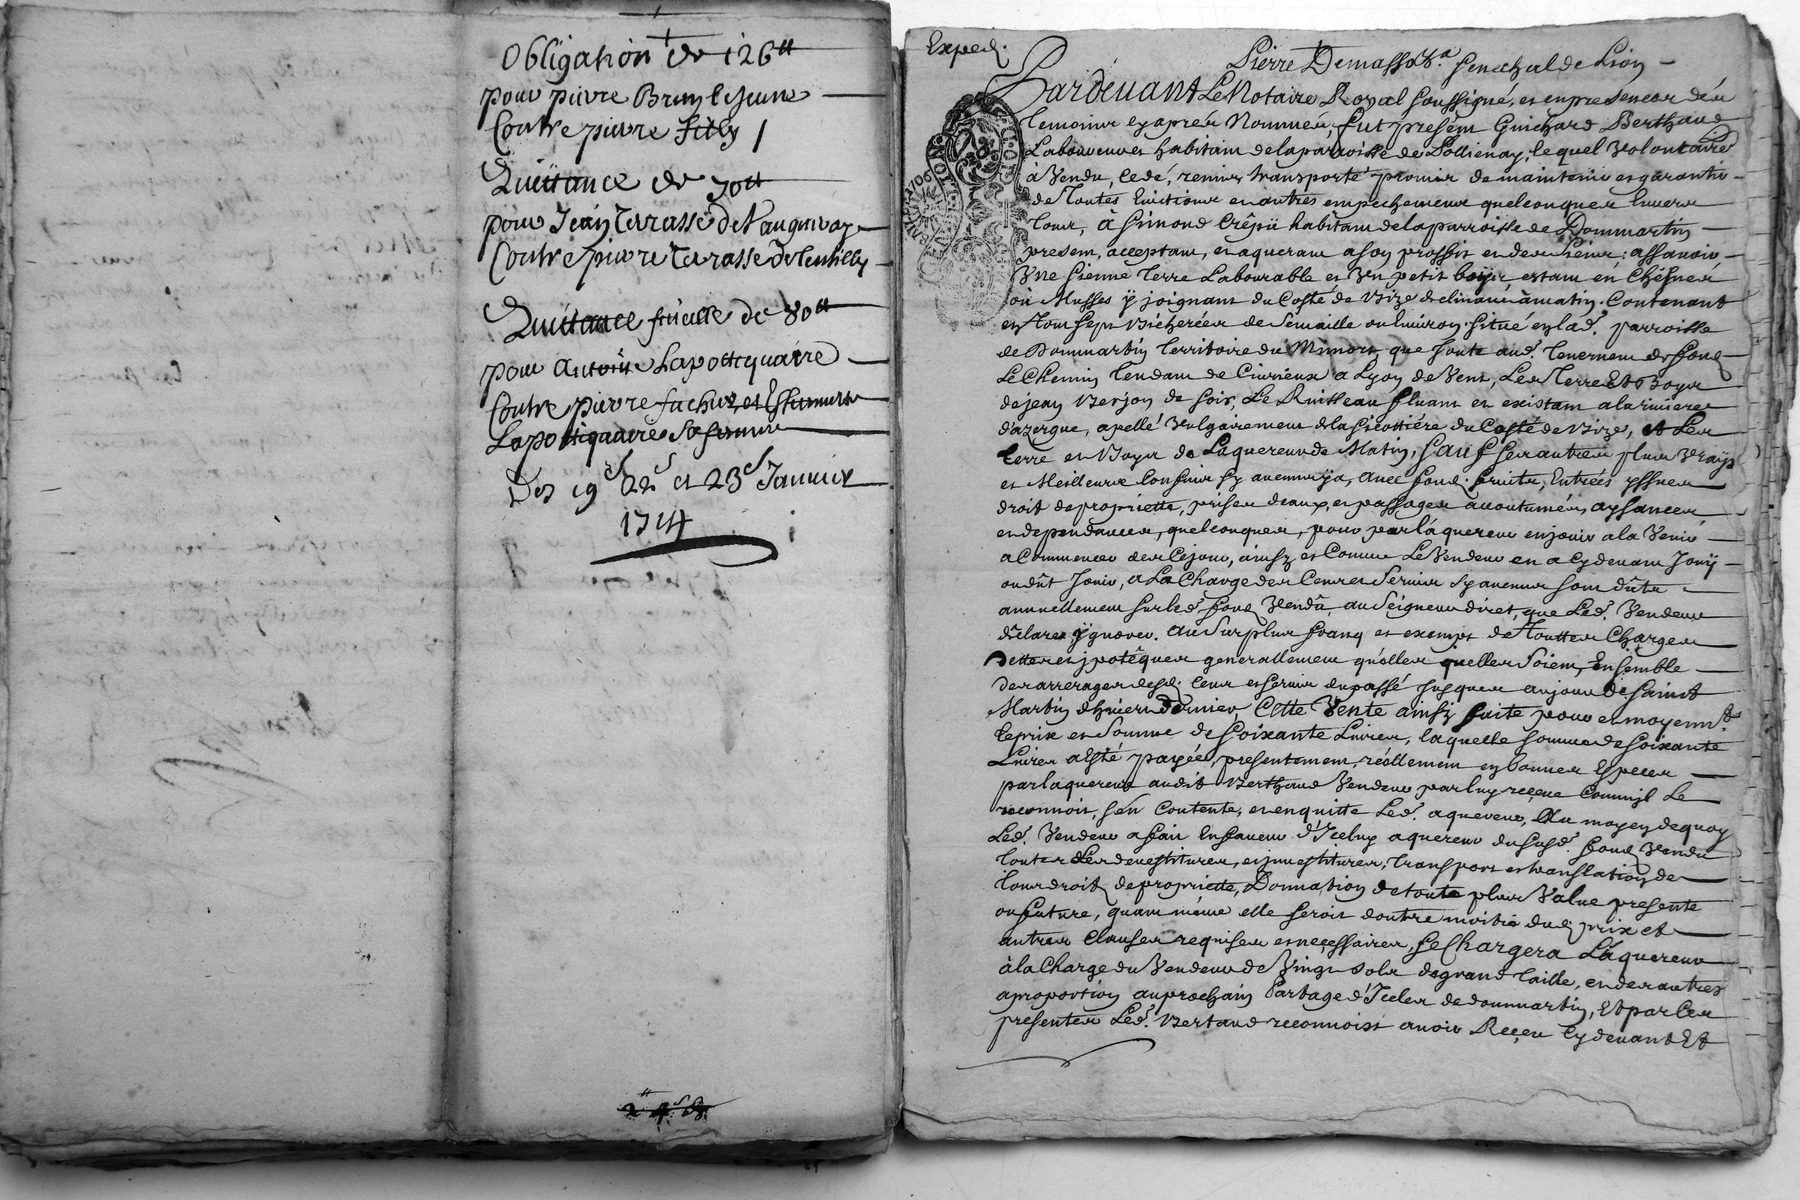 Obligation de 126ᵗᵗ
pour pierre Brun le Jeune
Contre pierre
Quittance de 70ᵗᵗ
pour Jean Terrasse de
Contre pierre Terrasse de Lentilly
Quittance finalle de 80ᵗᵗ
pour Antoine Lapotiquaire
Contre pierre et
Lapotiquaire Sa femme
Des 19ᵉ 22ᵉ et 23ᵉ Januier
1714
Exped.
Pierre Demasso Sr.ª senechal de Lion
Pardeuant Le Notaire Royal soussigné, et en presence des
temoins cy apres Nommés, fut present Guichard Berthaud
Laboureur habitant de la parroisse de Pollienay, lequel Volontaire
à Vendu, cedé, remis, transporté promis de maintenir et garantir
de Toutes Euictions et autres empechemens quelconques enuers
Tous, à Simond Crêpü habitant de la parroisse de Dommartin
present, acceptant, et aquerant a son proffit et des siens; assauoir
Vne sienne Terre Labourable et Vn petit estant en
joignant du Costé de Bize Contenant
en Tout sept Bicherées de Semaille ou enuiron situé en lad. parroisse
de Dommartin Territoire du que Jouste aud. Tenement de fond
Le Chemin Tendant de Ciurieux a Lyon de Vent, Les Terre Et Boys
de jean Berjon de soir, Le Ruisseau fluant et existant a la riuiere
d'azergue, apellé Vulgairement du Costé de Bize, et Les
terre et Boys de Laquereur de Matin, sauf ses autres plus Vrays
et Meilleurs Confins sy aucuns y a, Auec fond, fruits, Entrées yssues
droit de propriette, prises deaux, et passages acoutumés, aysances
et dependances, quelconques, pour par l'aquereur en jouir a la Venir
a Commencer des ce jour, ainsy et Comme Le Vendeur en a cy deuant Jouÿ
ou dût Jouir, a La Charge des Cens et Seruis sy aucuns sont dûts
annuellement sur led. fond Vendû au Seigneur diret, que Led. Vendeur
déclare ÿgnorer. Au Surplus franq et exempt de Touttes Charges
dettes et jpotêques generallement qu'elles quelles soient, Ensemble
des arrerages desd. Cens et seruis du passé jusques au jour de saint
Martin d'hiuer dernier, Cette Vente ainsy faite pour et moyenn.ᵗ
le prix et Somme de soixante Liures, laquelle somme de soixante
Liures a Esté payée, presentement, réellement en bonnes Especes
par laquereur audit Berthaud Vendeur par luy receue Comm'jl Le
reconnoit, s'en contente, et en quitte Led. aquereur, Au moyen dequoy
Led. Vendeur a fait En faueur d'Iceluy aquereur du susd. fond Vendu
toutes Les deuestitures, et jnuestitures, Transport et translation de
tous droits de propriette, Donnation de toute plus Value presente
ou future, quant même elle seroit d'outre moitié dud. prix et
autres clauses requises et neçessaires, se Chargera L'aquereur
à la Charge du Vendeur de Vingt sols de grand Taille, et des autres
a proportion au prochain Partage d'Icelles de dommartin, Et par Ces
presentes Led. Bertaud reconnoist auoir Reçeu Cy deuant Et